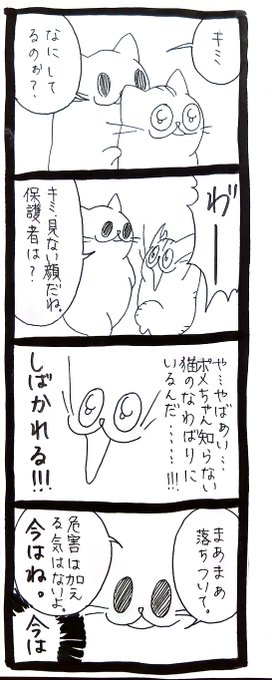 キミ
なにして
るのぉ?
ガーーーッ
キミ、見ない顔だね。
保護者は?
や…やばぁい…
ポメちゃん知らない
猫のなわばりに
いるんだ……!!!
しばかれる!!!
まあまあ
落ちついて。
危害は加え
る気はないよ。
今はね。
今は